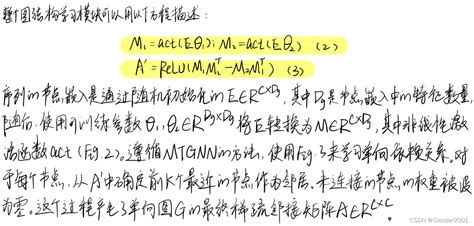 整个图结构学习模块可以用以下方程描述：
M₁=act(Eθ₁)；M₂=act(Eθ₂) （2）
A'=ReLU(M₁M₂ᵀ-M₂M₁ᵀ) （3）
序列的节点嵌入是通过随机初始化的E∈R^{C×Dg}，其中Dg是节点嵌入中的特征数量。
随后，使用可训练参数θ₁,θ₂∈R^{Dg×Dg}将E转换为M∈R^{C×Dg}，其中非线性激
活函数act（Eq.2）。遵循MTGNN的方法，使用Eq.3来学习单向依赖关系。对
于每个节点，从A'中确定前K个最近的节点作为邻居。未连接的节点的权重被设
为零。这个过程产生了单向图G的最终稀疏邻接矩阵A∈R^{C×C}。
CSDN @Slender2001